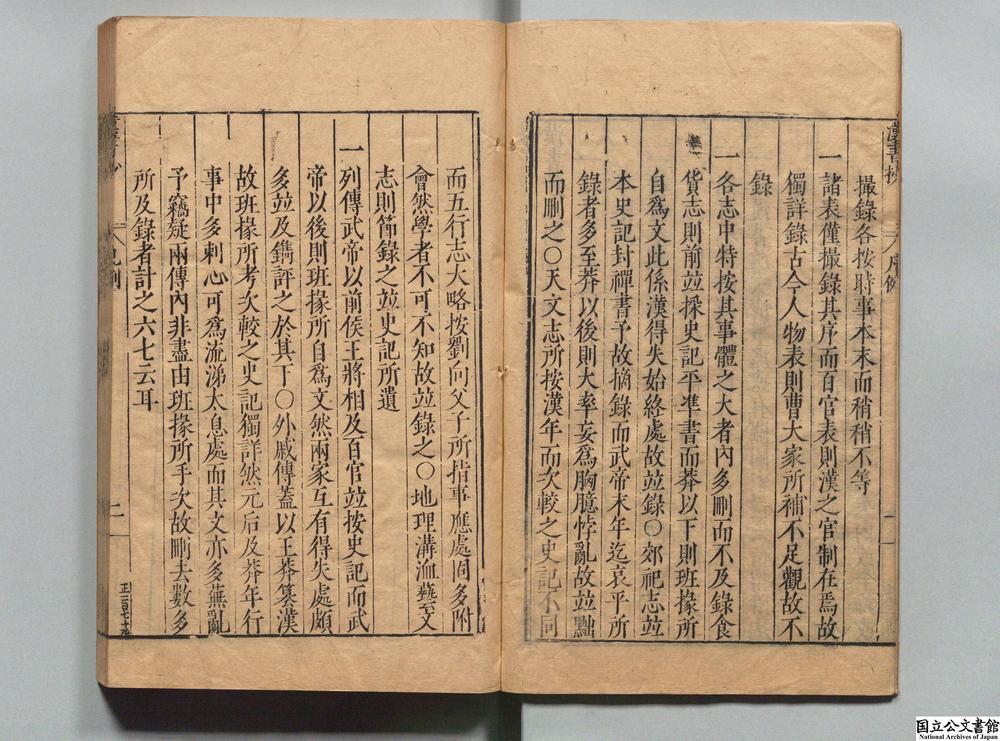 漢書抄
凡例
一
撮錄各按時事本末而稍稍不等
一諸表僅撮錄其序而百官表則漢之官制在焉故
獨詳錄古今人物表則曹大家所補不足觀故不
錄
一各志中特按其事體之大者內多刪而不及錄食
貨志則前並採史記平準書而莽以下則班掾所
自爲文此係漢得失始終處故並錄○郊祀志並
本史記封禪書予故摘錄而武帝末年迄哀平所
錄者多至莽以後則大率妄爲胸臆悖亂故並黜
而刪之○天文志所按漢年而次較之史記不同
而五行志大略按劉向父子所指事應處悯多附
會然學者不可不知故並錄之○地理溝洫藝文
志則節錄之並史記所遺
一列傳武帝以前侯王將相及百官並按史記而武
帝以後則班掾所自爲文然兩家互有得失處頗
多並及鐫評之於其下○外戚傳蓋以王莽篡漢
故班掾所考次較之史記獨詳然元后及莽年行
事中多刺心可爲流涕太息處而其文亦多蕪亂
予竊疑兩傳內非盡由班掾所手次故刪去數多
所及錄者計之六七云耳
凡例
二
国立公文書館
National Archives of Japan